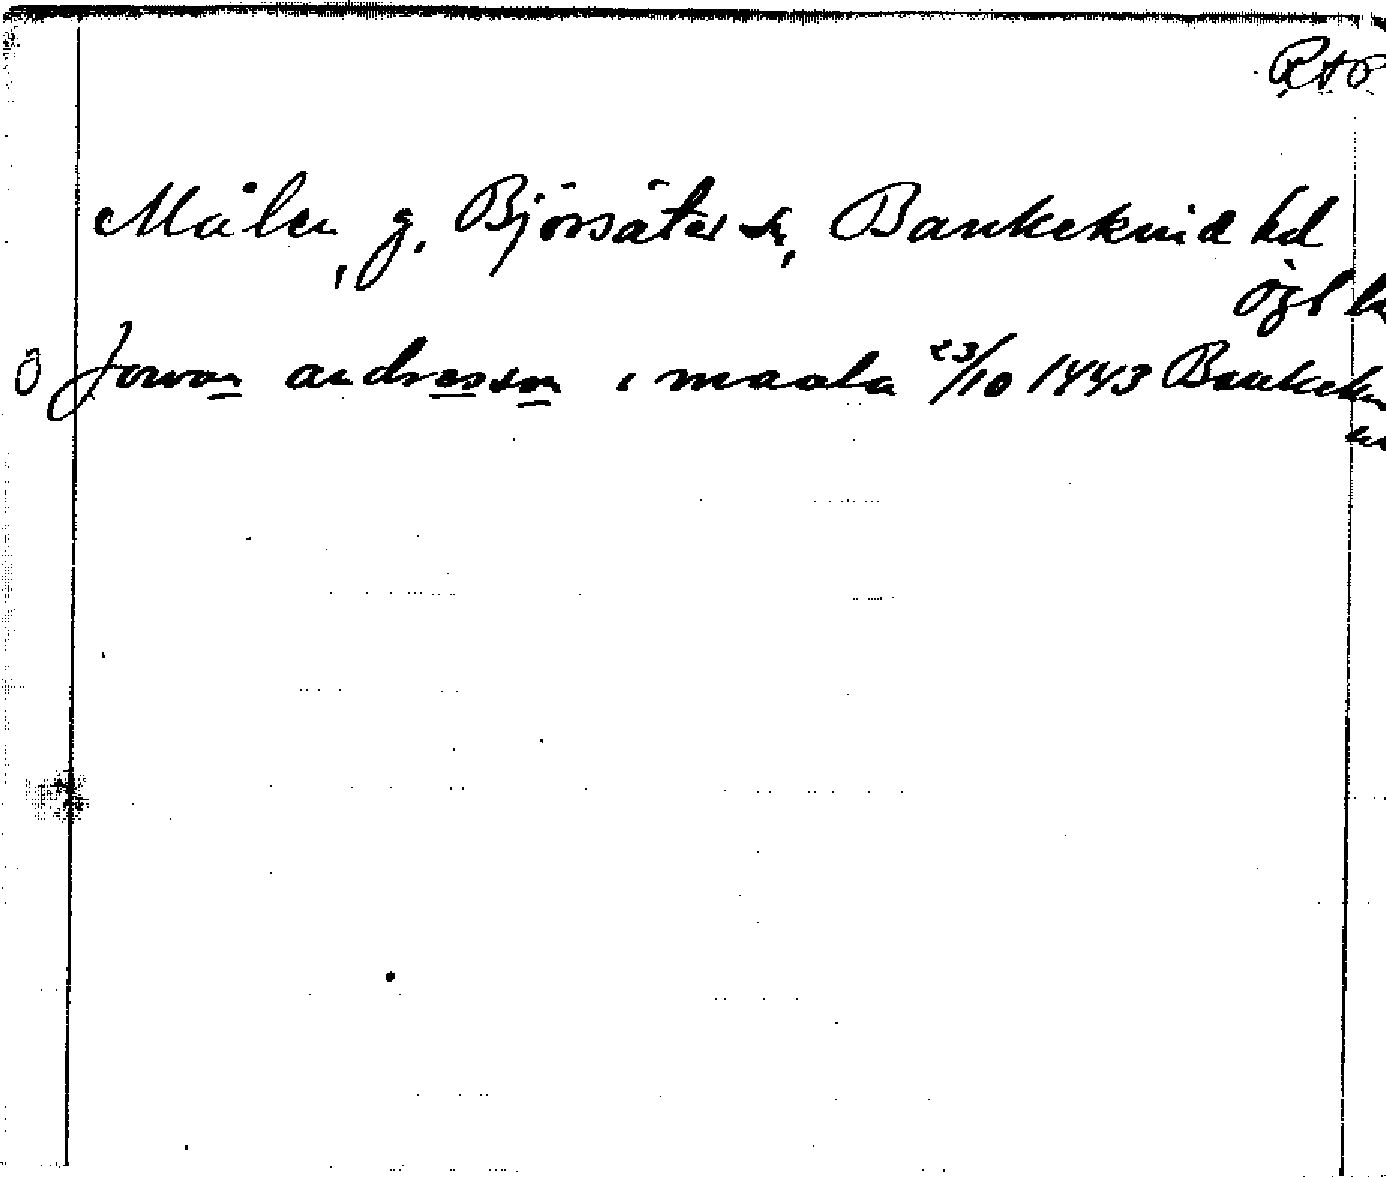 RAP
Målen, g. Björsäters sn, Bankekind hd
ögl
Jowan andresson i maala 23/10 1443 Bankek